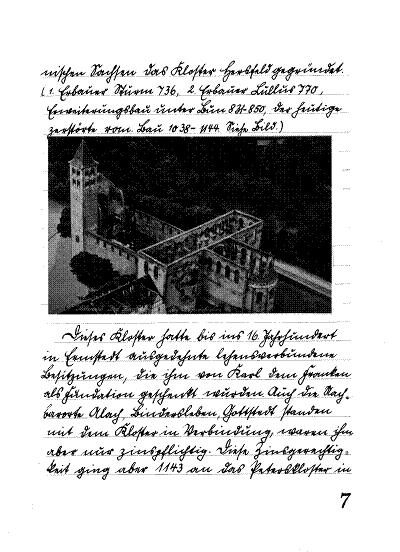 nischen Sachsen das Kloster Hersfeld gegründet.
(1. Erbauer Sturm 736, 2. Erbauer Lullus 770,
Erweiterungsbau unter Bun 831-850, der heutige
zerstörte rom. Bau 1038-1144. Siehe Bild.)
Dieses Kloster hatte bis ins 16. Jahrhundert
in Ermstedt ausgedehnte lehensverbundene
Besitzungen, die ihm von Karl dem Franken
als Fundation geschenkt wurden Auch die Nach-
barorte Alach, Bindersleben, Gottstedt standen
mit dem Kloster in Verbindung, waren ihm
aber nur zinspflichtig. Diese Zinsgerechtig-
keit ging aber 1143 an das Peterskloster in
7